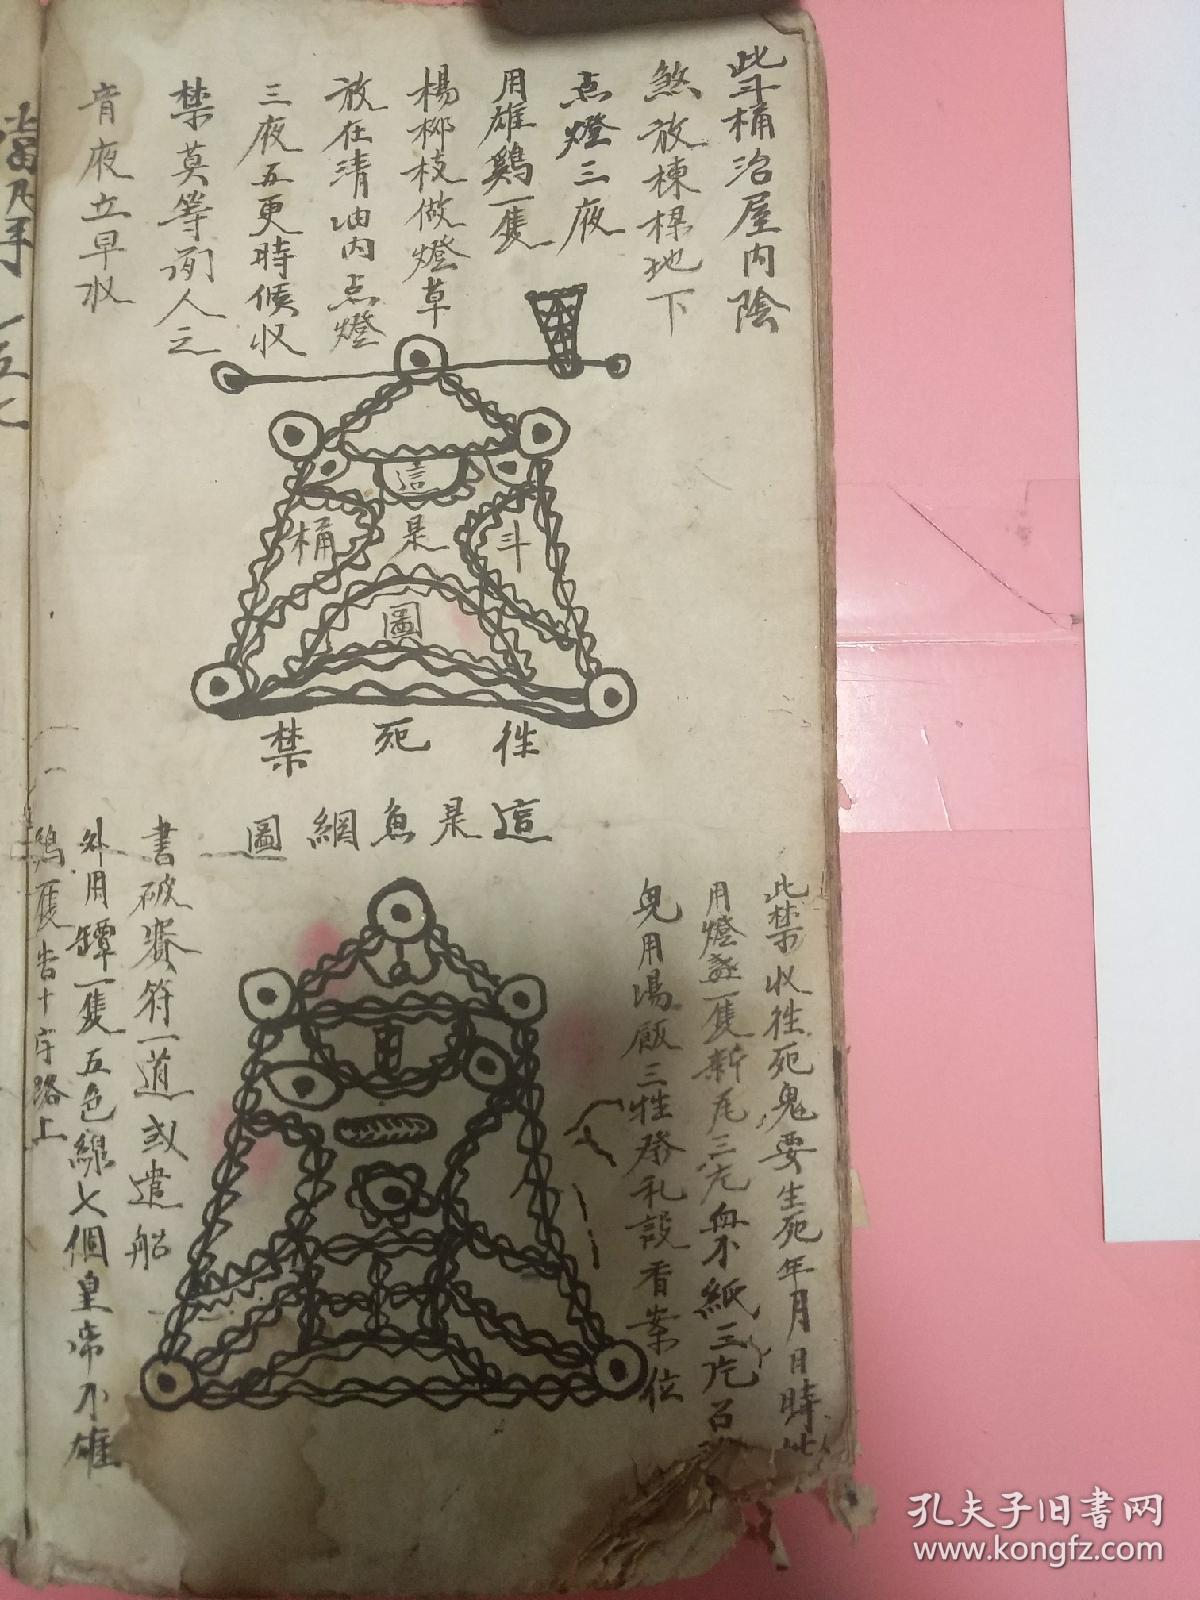 此斗桶治屋内陰
煞放棟樑地下
点燈三夜
用雄鷄一隻
楊柳枝做燈草
放在清油内点燈
三夜五更時候収
禁莫等
人之
音夜立早収
這
斗 是 桶
圖
徃死禁
這是魚網圖
此禁収徃死鬼要生死年月日時此
用燈盞一隻新瓦三
血不紙三
召
用湯飯三牲
礼設香案位
書破
符一道或遣船
外用罈一隻五色線七個皇帝不雄
鷄隻
十字路上
孔夫子旧书网
www.kongfz.com